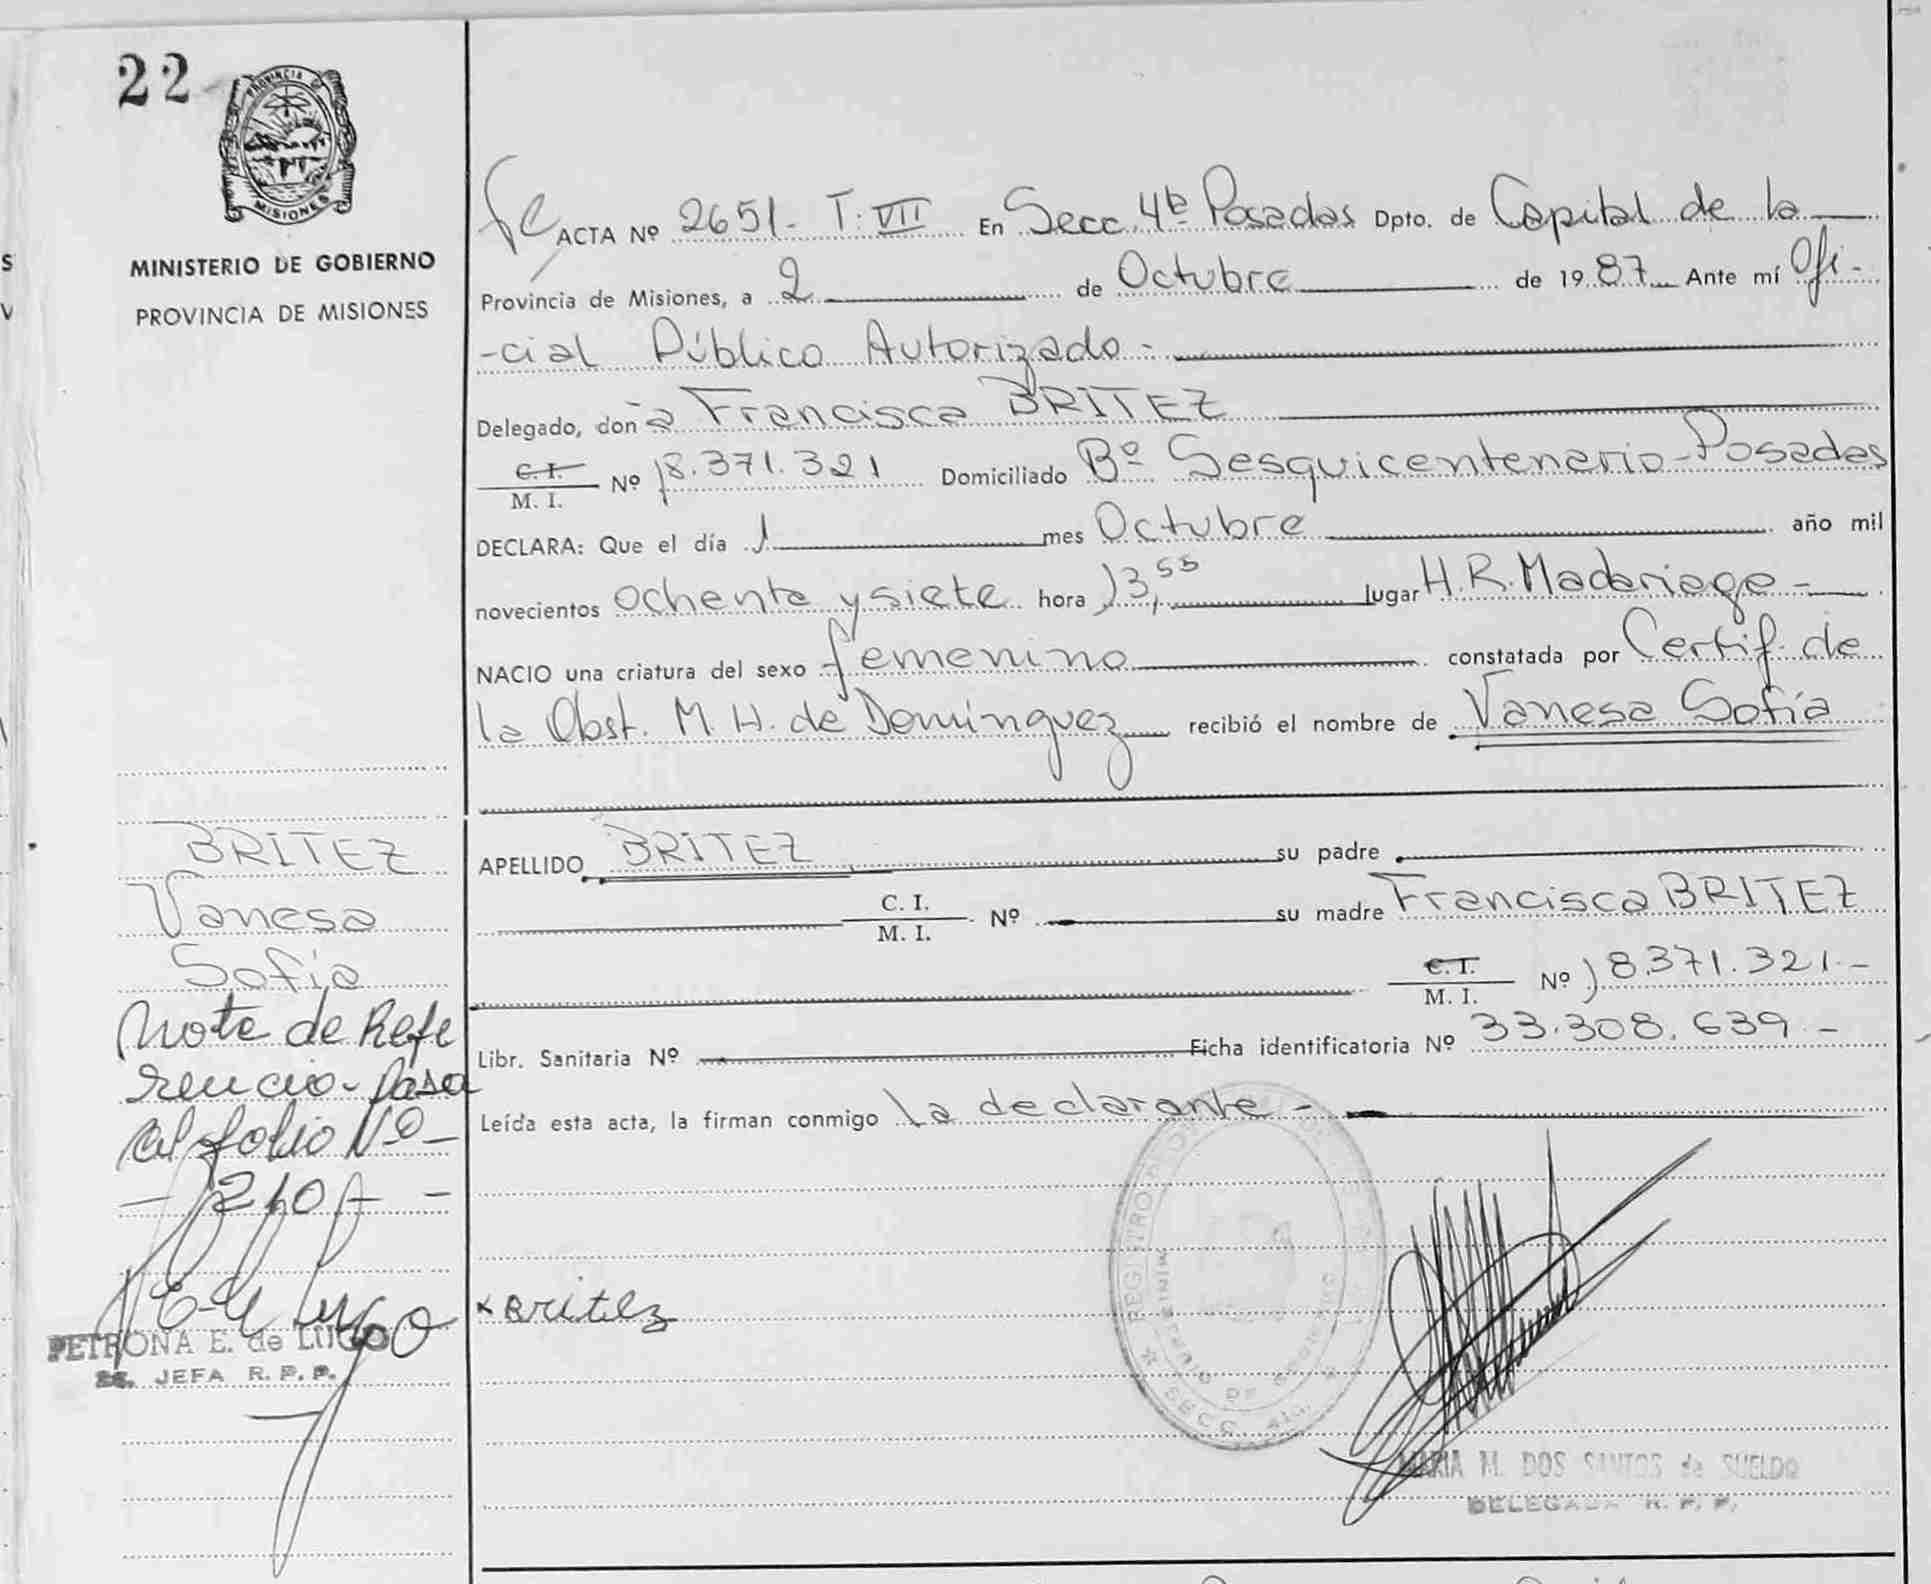 22
PROVINCIA DE
MISIONES
MINISTERIO DE GOBIERNO
PROVINCIA DE MISIONES
ACTA Nº 2651- T: VII En Secc. 4ta Posadas Dpto. de Capital de la
Provincia de Misiones, a 2 de Octubre de 1987 Ante mí Ofi-
-cial Público Autorizado-
Delegado, doña Francisca BRITEZ
C. I. / M. I. Nº 18.371.321 Domiciliado Bº Sesquicentenario-Posadas
DECLARA: Que el día 1 mes Octubre año mil
novecientos ochenta y siete hora 13,55 lugar H.R. Madariaga-
NACIO una criatura del sexo femenino constatada por Certif. de
la Obst. M. H. de Domínguez recibió el nombre de Vanesa Sofía
APELLIDO BRITEZ su padre
C. I. / M. I. Nº su madre Francisca BRITEZ
C. I. / M. I. Nº 18.371.321.-
Libr. Sanitaria Nº Ficha identificatoria Nº 33.308.639-
Leída esta acta, la firman conmigo la declarante-
BRITEZ
Vanesa
Sofía
Nota de Refe
rencia- Pasa
al folio Nº-
-210- -
PETRONA E. de LUGO
JEFA R. P. P.
x Britez
REGISTRO
SECC. 4ta.
MARIA M. DOS SANTOS de SUELDO
DELEGADA R. P. P.